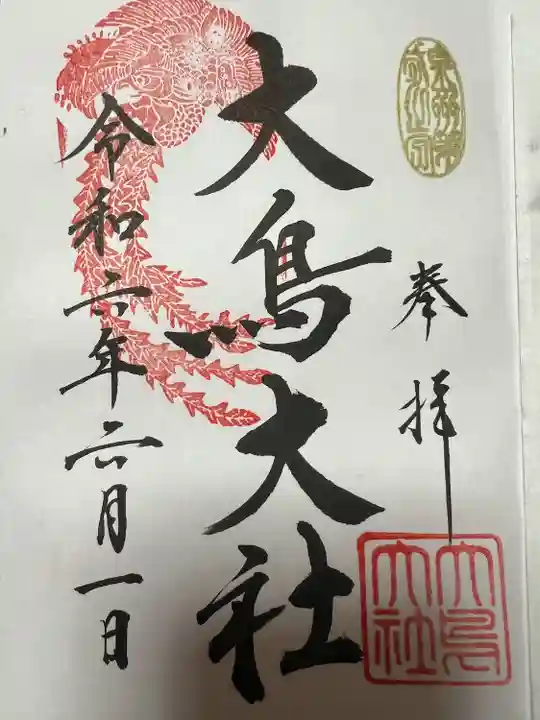 奉拝
大鳥大社
大鳥大社
令和六年六月一日